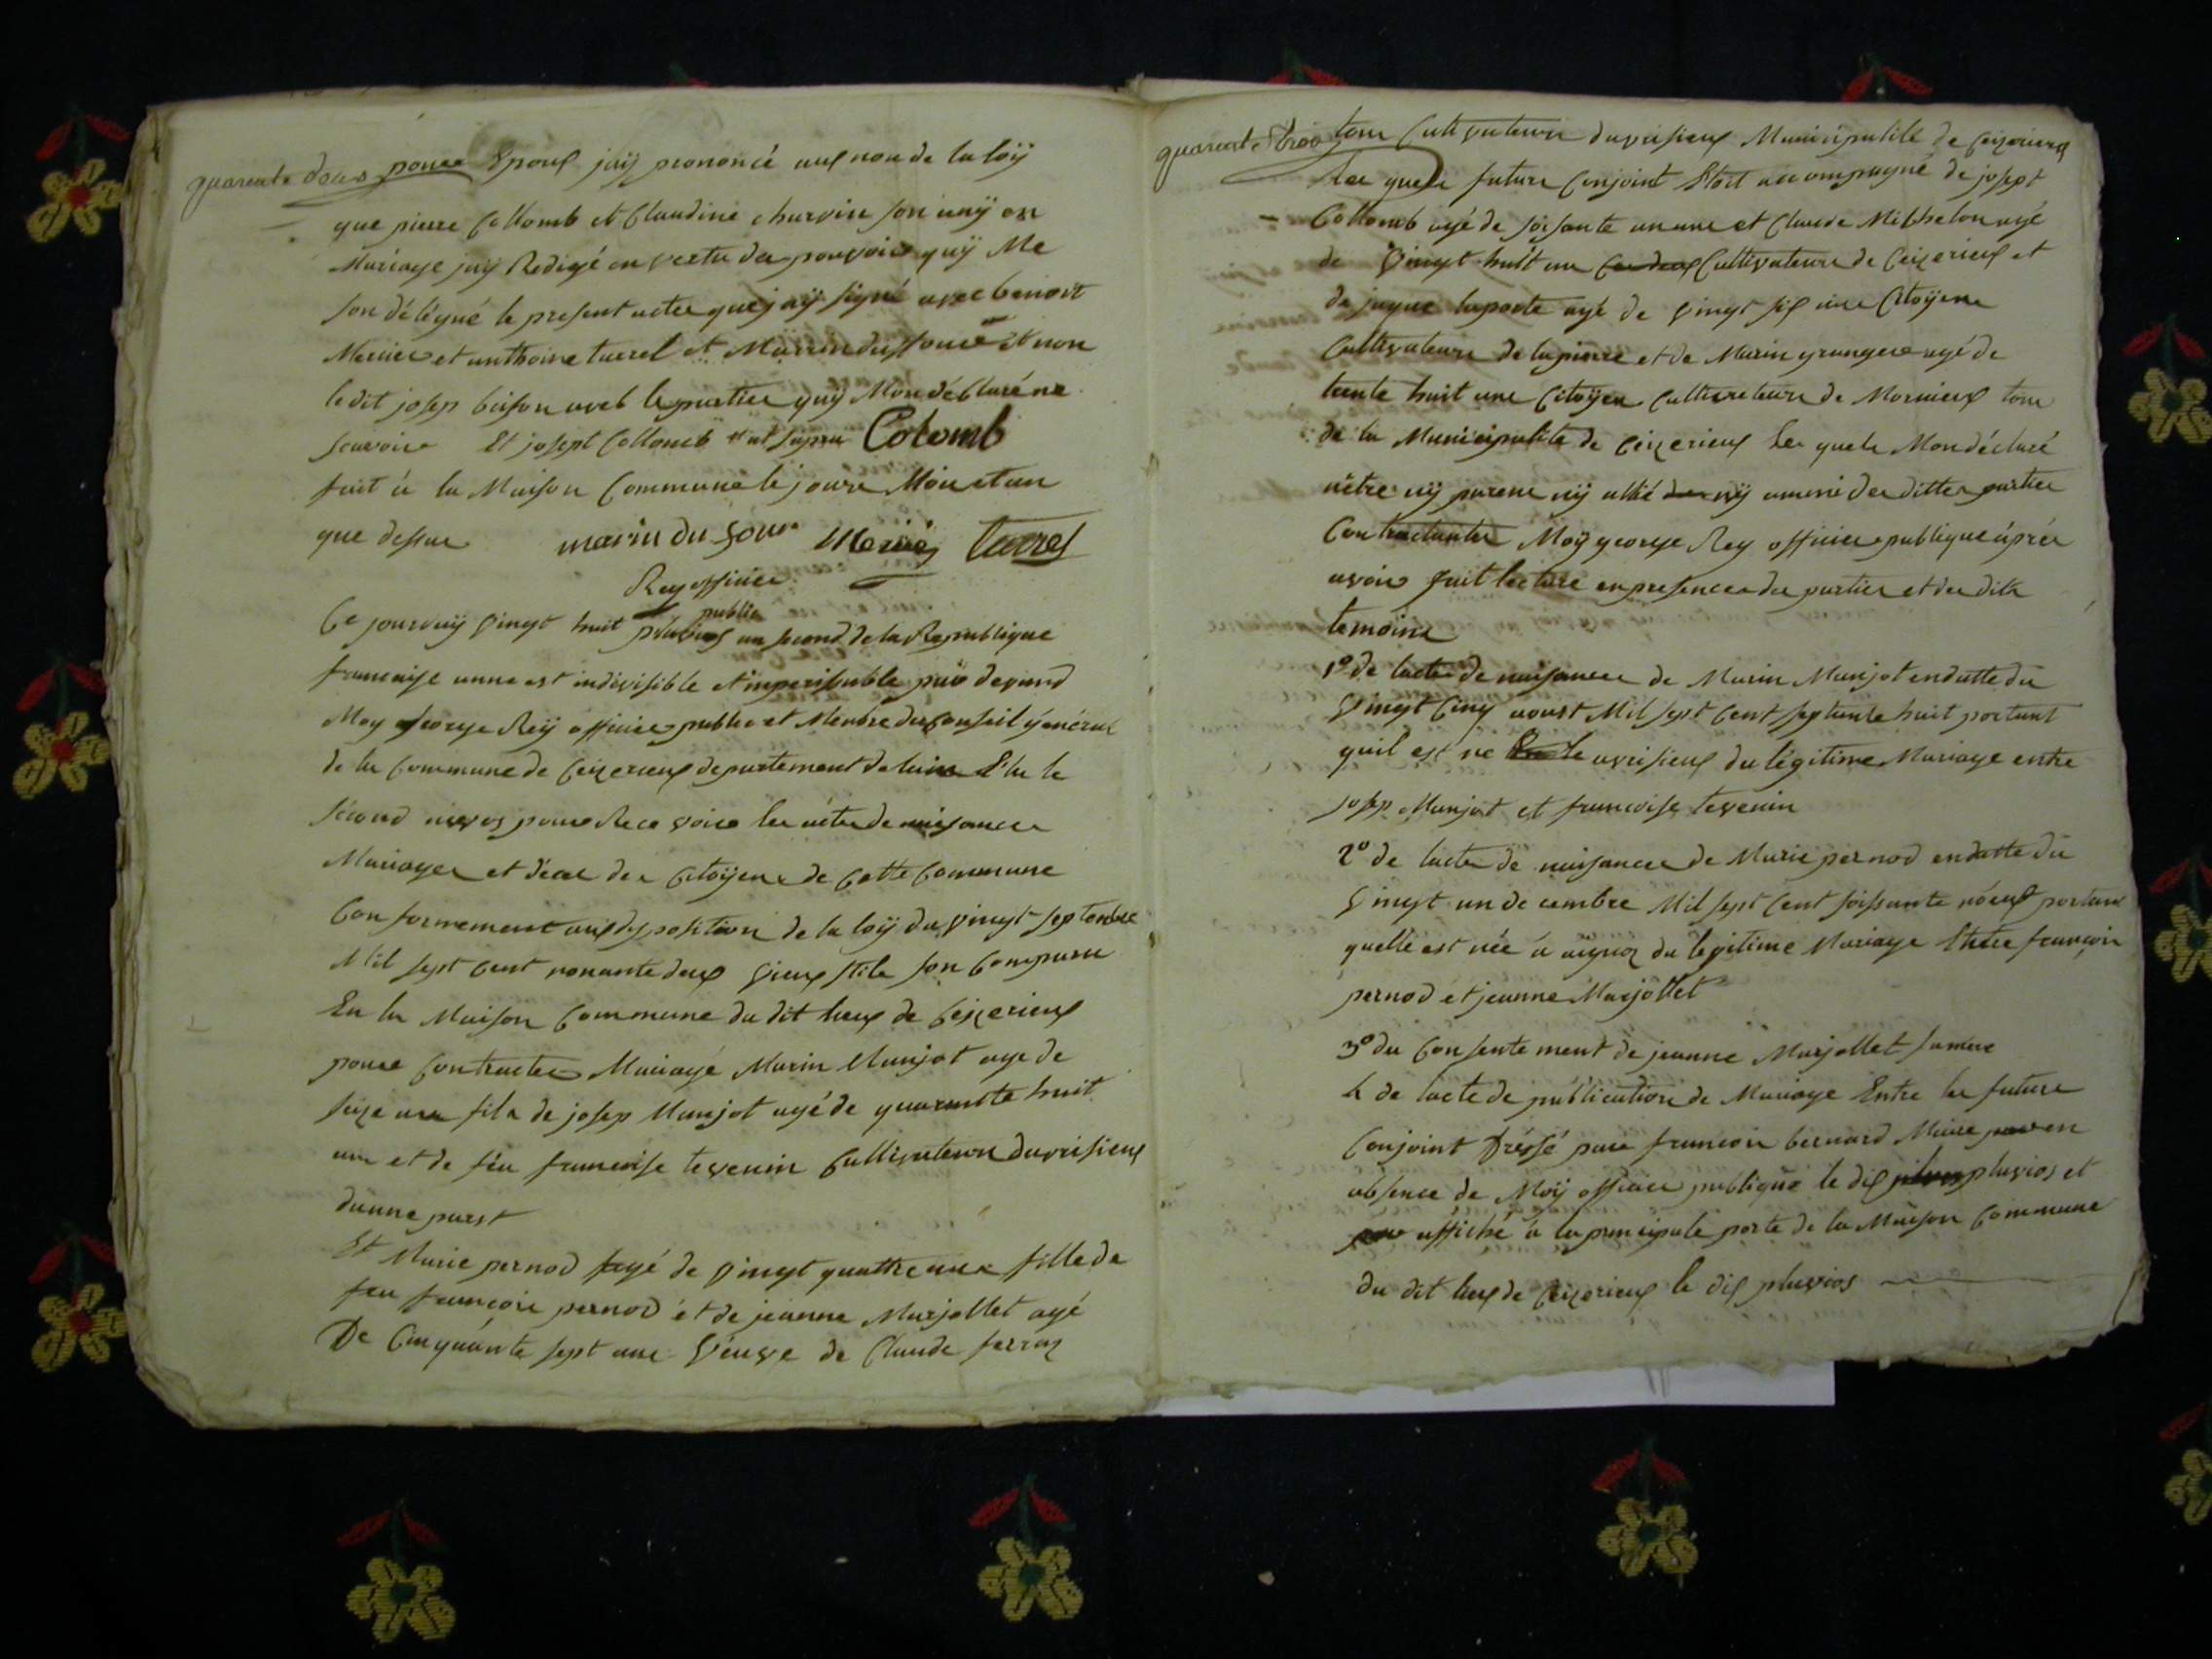 quarente deux
pour Epoux jaÿ prononcé aux non de la loÿ
que pierre Collomb et Claudine charvin son unÿ en
Mariage jaÿ Redigé en vertu des pouvoir quÿ Me
son délégué le present acte que jaÿ signé avec benoit
Mercier et anthoine turrel et Marin dufour et non
ledit josep buison aveb les parties quÿ Mon déClaré ne
scavoir Et josept Collomb ut supra Colomb
fait à la Maison Commune le jours Moi et an
que dessus marin du four Mercier turrel
Rey officier
public
Ce jourduÿ vingt huit pluvios an second de la Republique
francaise unne et indivisible et imperissable par devand
Moy George Reÿ officier public et Membre du Conseil général
de la Commune de Ceizerieux departement de lain Elu le
second nivos pour Recevoir les actes de naisances
Mariages et décés des Citoÿens de Cette Commune
Conformement aux disposition de la loÿ du vingt septembre
Mil sept Cent nonante deux vieux stile son Comparu
En la Maison Commune du dit lieux de Ceizerieux
pour Contracter Mariage Marin Manjot age de
seize ans fils de josep Manjot agé de quarante huit
ans et de féu francoise tevenin Cultivateurs davrisieux
dunne parst
Et Marie pernod agé de vingt quattre ans fille de
feu françois pernod et de jeanne Marjollet agé
De Cinquante sept ans véuve de Claude ferraz
quarente trois
tous Cultivateurs davrisieux Municipalité de Ceizerieux
Les quels futurs Conjoint Etoit accompagné de josept
Collomb agé de soisante un ans et Claude Mithelon agé
de vingt huit ans Cultivateurs de Ceizerieux et
de jaque laporte agé de vingt six ans Citoÿens
Cultivateurs de lapierre et de Marin granger agé de
trente huit ans Citoÿen Cultivateurs de Mornieux tous
de la Municipalité de Ceizerieux Les quels Mon déclaré
nêtre nÿ parens nÿ allié nÿ ammi des dittes parties
Contractantes Moÿ george Rey officier publique àprés
avoir fait lecture en presence des parties et des dits
temoins
1º de lacte de naisances de Marin Manjot en datte du
vingt Cinq aoust Mil sept Cent septante huit portant
quil est né le avrisieux du légitime Mariage entre
josep Manjot et francoise tevenin
2º de lacte de naisances de Marie pernod en datte du
vingt un decembre Mil sept Cent soissante nóeuf portant
quelle est née à aignoz du legitime Mariage Entre françois
pernod et jeanne Marjollet
3º du Consentement de jeanne Marjollet sa mere
4 de lacte de publication de Mariage Entre les futurs
Conjoint dréssé par francois bernard Maire en
absence de Moÿ officier publique le dix pluvios et
affiché à la principale porte de la Maison Commune
du dit lieux de Ceizerieux le dix pluvios